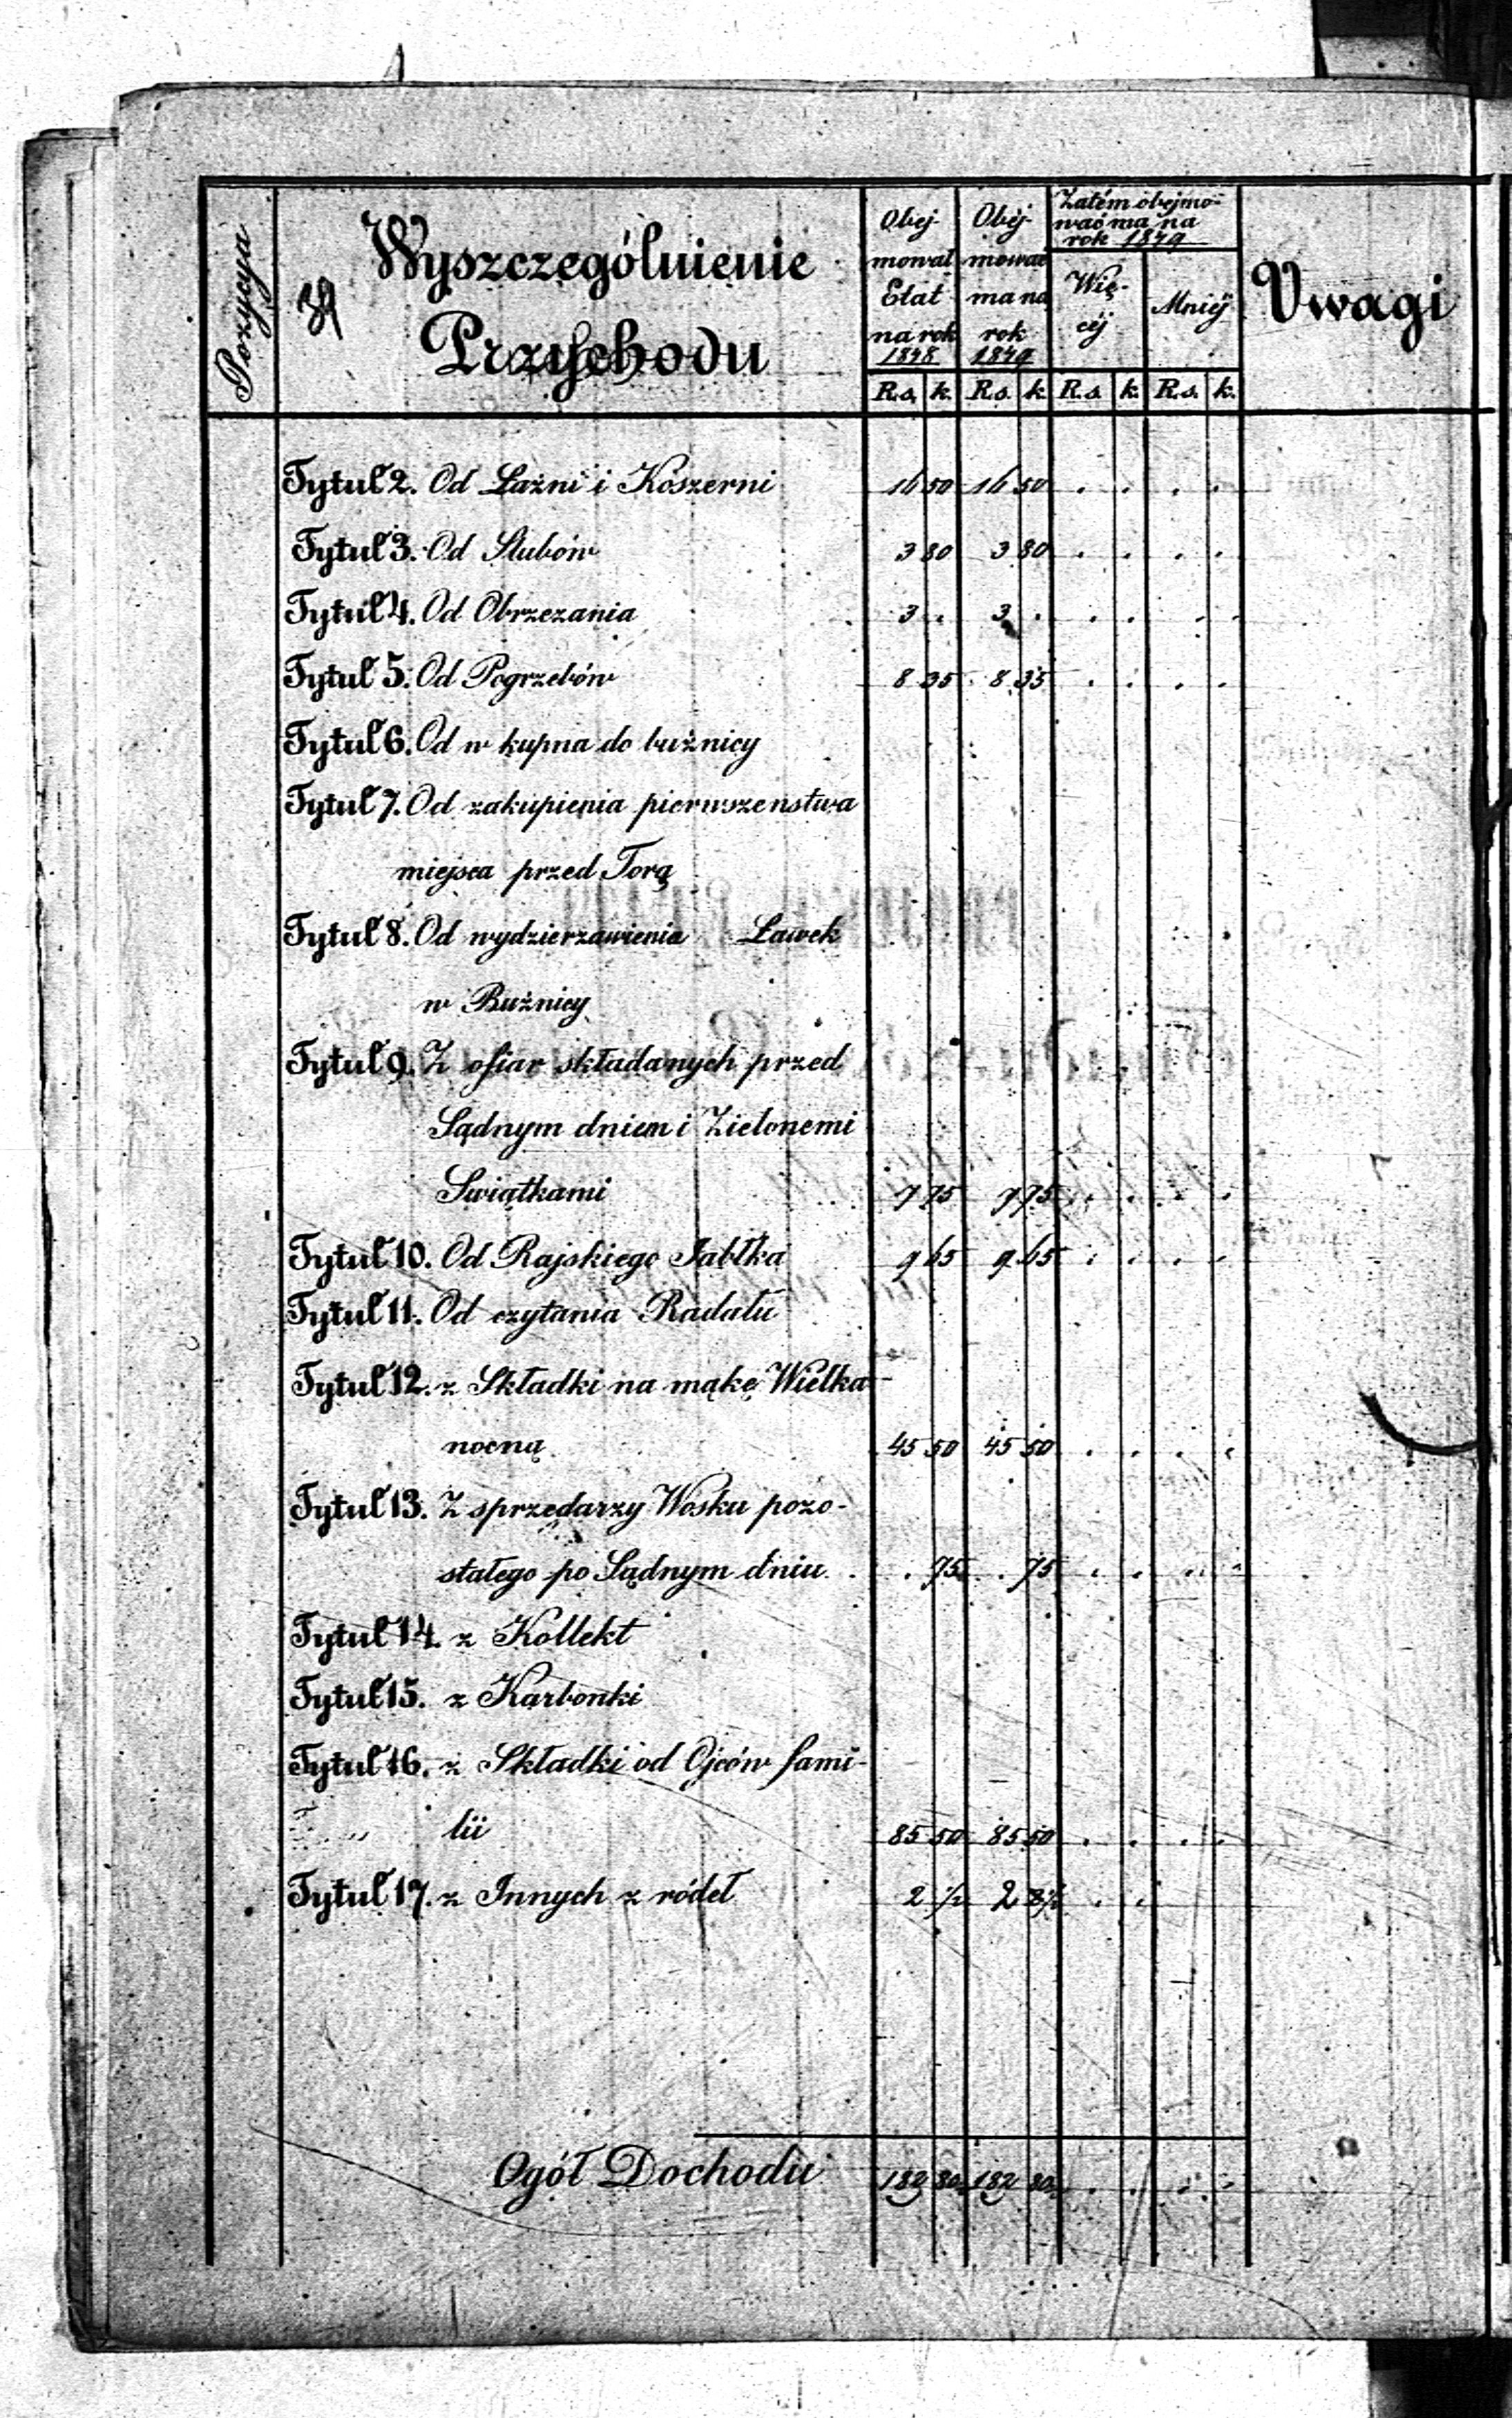 Pozycya
Wyszczególnienie
Przychodu
Obej-
mował
Etat
na rok
1848.
Obej-
mować
ma na
rok
1849
Zatém obejmo-
wać ma na
rok 1849
Wię-
céj
Mniéj
Uwagi
R.s. k. R.s. k. R.s. k. R.s. k.
Tytuł 2. Od Łaźni i Koszerni 16 50 16 50 . . . .
Tytuł 3. Od Slubów 3 80 3 80 . . . .
Tytuł 4. Od Obrzezania 3 . 3 . . . . .
Tytuł 5. Od Pogrzebów 8 35 8 35 . . . .
Tytuł 6. Od w kupna do bużnicy
Tytuł 7. Od zakupienia pierwszenstwa
miejsca przed Torą
Tytuł 8. Od wydzierzawienia Ławek
w Bużnicy
Tytuł 9. Z ofiar składanych przed
Sądnym dniem i Zielonemi
Swiątkami 7 75 7 75 . . . .
Tytuł 10. Od Rajskiego Jabłka 9 65 9 65 . . . .
Tytuł 11. Od czytania Radału
Tytuł 12. z Składki na mąkę Wielka-
nocną 45 50 45 50 . . . .
Tytuł 13. Z sprzedarzy Wosku pozo-
stałego po Sądnym dniu . 75 . 75 . . . .
Tytuł 14. z Kollekt
Tytuł 15. z Karbonki
Tytuł 16. z Składki od Ojców fami-
lii 85 50 85 50 . . . .
Tytuł 17. z Innych z ródeł 2 2 . .
Ogół Dochodu 182 182 . . . .